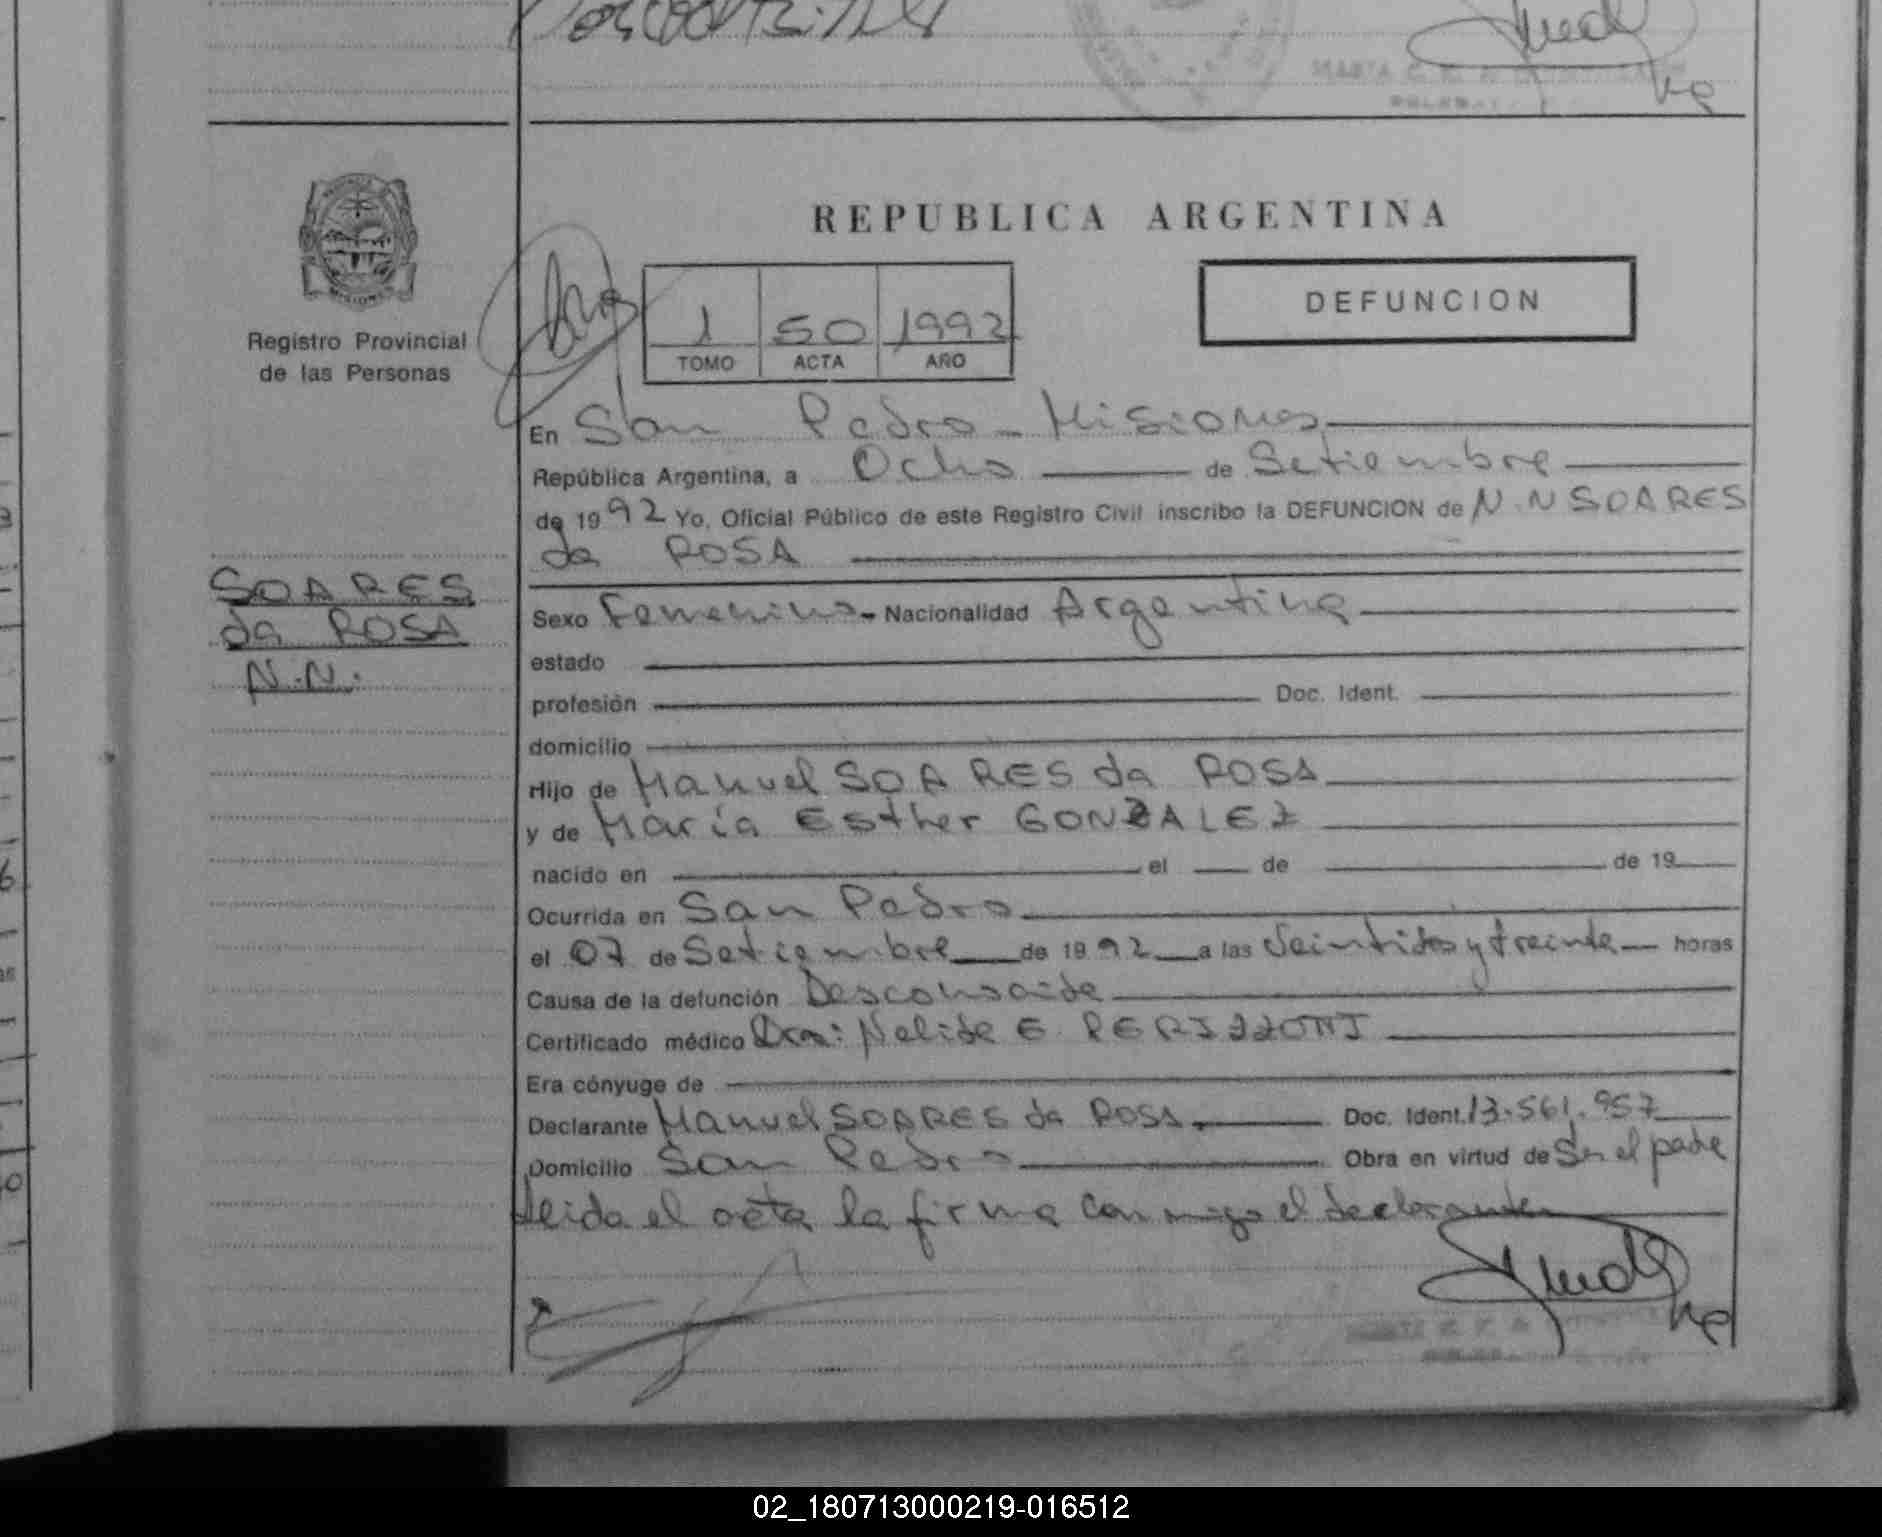 REPUBLICA ARGENTINA
DEFUNCION
Registro Provincial
de las Personas
1 50 1992
TOMO ACTA AÑO
En San Pedro - Misiones
República Argentina, a Ocho de Setiembre
de 1992 Yo, Oficial Público de este Registro Civil inscribo la DEFUNCION de N.N SOARES
da ROSA
SOARES
da ROSA
N.N.
Sexo Femenino - Nacionalidad Argentina
estado
profesión Doc. Ident.
domicilio
Hijo de Manuel SOARES da ROSA
y de María Esther GONZALEZ
nacido en el de de 19
Ocurrida en San Pedro
el 07 de Setiembre de 1992 a las Veintidos y treinta horas
Causa de la defunción Desconocida
Certificado médico Dra: Nelida E. PERIZZONI
Era cónyuge de
Declarante Manuel SOARES da ROSA. Doc. Ident. 13.561.957
Domicilio San Pedro Obra en virtud de Ser el padre
Leida el acta la firma conmigo el declarante
02_180713000219-016512